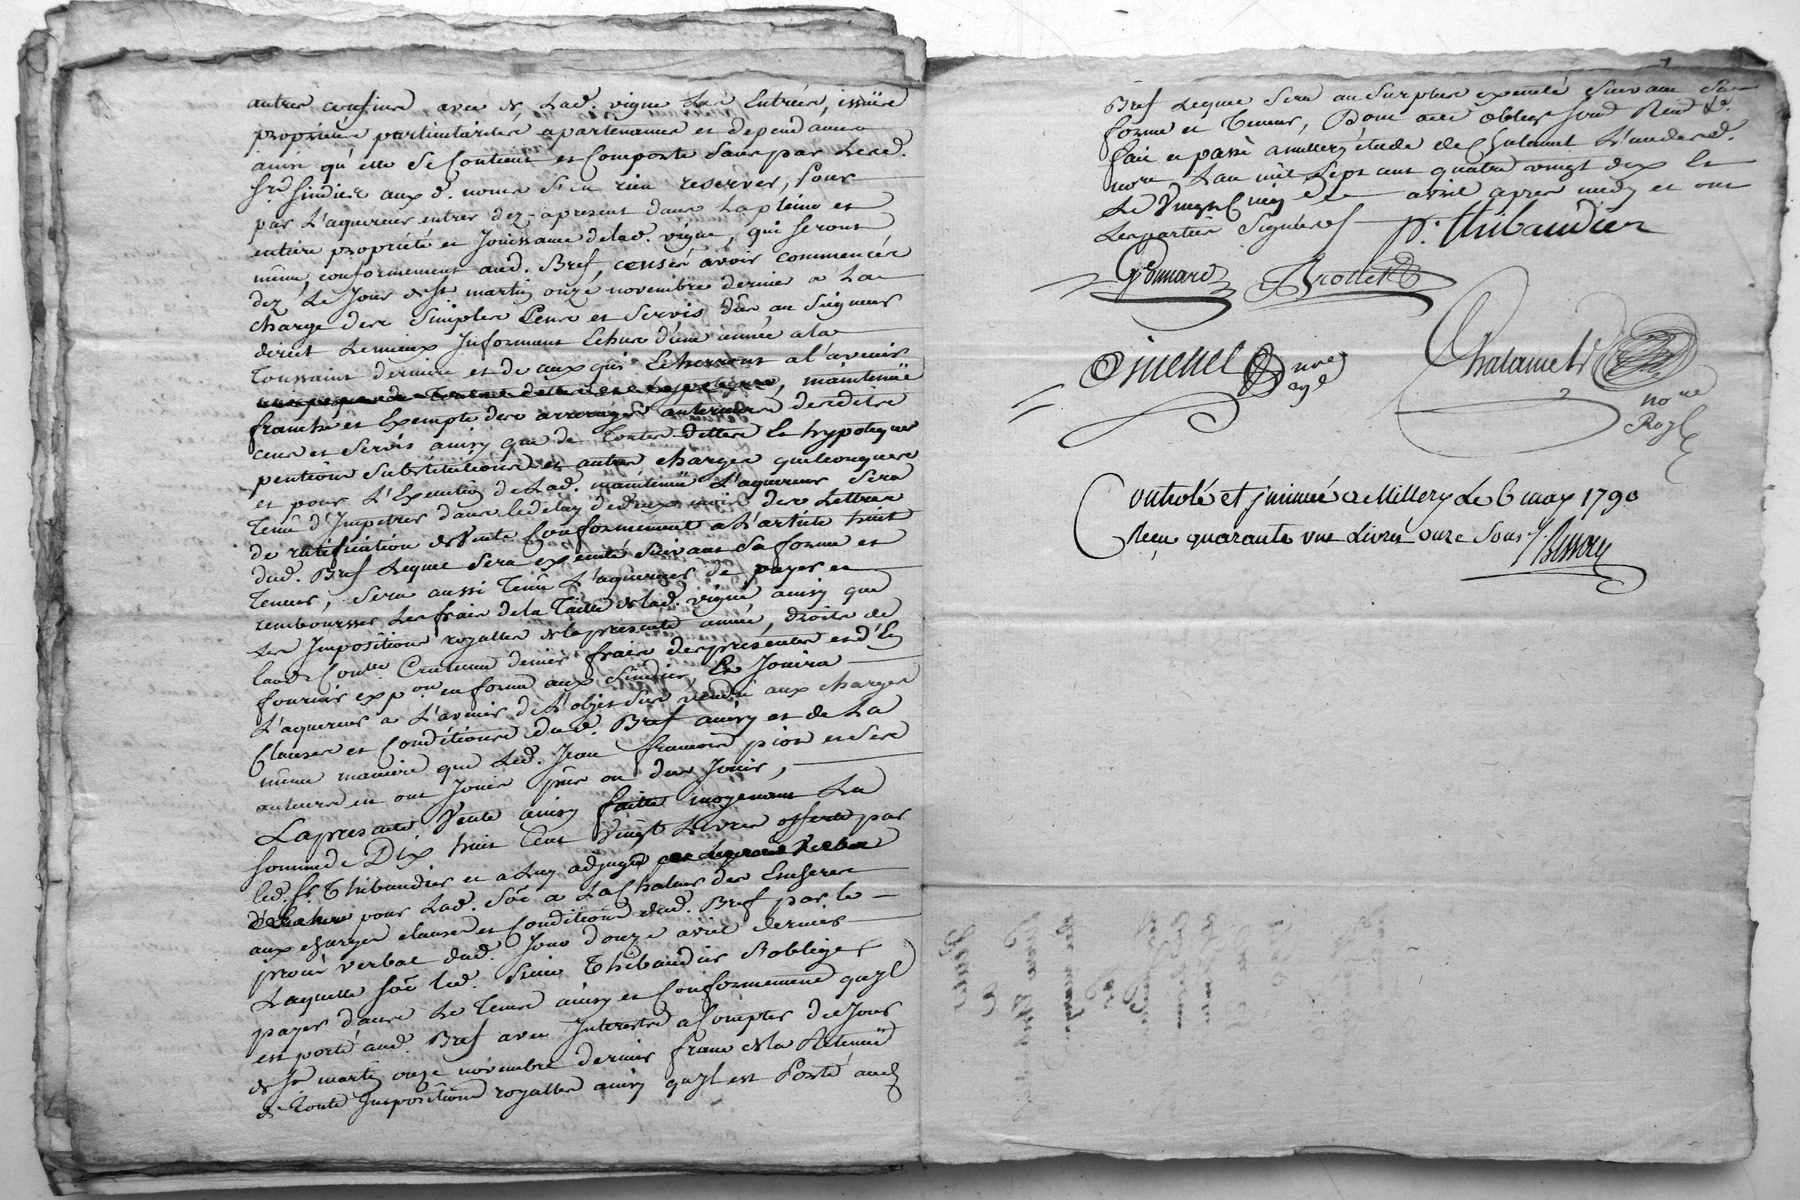 autres confins avec de Lad. vigne Les Entrées, issües
proprietés particularités apartenances et dependances
ainsi qu'elle se Contient et Comporte sans par Lesd.
Srs sindics aux d. noms s'en rien reserver, pour
par L'aquereur entrer dez-apresent dans La pleine et
entiere proprieté et Jouissance de lad. vigne, qui seront
même, conformement aud. Bref, censés avoir commencés
dez Le Jour de St martin onze novembre dernier a La
charge des simples Cens et servis dûs au seigneur
direct Le mieux Informant Echus d'une année a la
Toussaint dernier et de ceux qui Echerront a l'avenir
maintenüe
franche et Exempte des arrerages anterieurs desdits
cens et servis ainsy que de toutes dettes Et hypoteques
pentions substitutions et autres charges quelconques
et pour L'Execution de Lad. maintenüe L'aquereur sera
Tenû d'Impetrer dans le delay de deux mois des Lettres
de ratification de Vente Conformement a L'article huit
dud. Bref Lequel sera executé suivant sa forme et
teneur, sera aussi Tenû L'aquereur de payer et
rembourser Les frais de la Taille de lad. vigne ainsy que
Les Impositions royalles de la presente année, droits de
Laods Contle Centieme denier frais des présentes et d'En
fournir expon en forme aux sindics, Et Jouira
L'aquereur a L'avenir de L'objet sus vendu aux charges
Clauses et Conditions dud. Bref ainsy et de La
même maniere que Led. Jean françois pion et ses
auteurs en ont Joui pû ou dus Jouir,
La presente Vente ainsy faitte moyenant La
somme de Dix huit Cent Vingt Livres offerte par
led. Sr Thibaudier et a Luy adjugé
pour Lad. sôe a La Chaleur des Encheres
aux charges clauses et Conditions dud. Bref par le
procés verbal dud. Jour douze avril dernier
Laquelle sôe led. Sieur Thibaudier s'oblige
payer dans Le Terme ainsy et Conformement qu'yl
est porté aud. Bref avec Interests a Compter du Jour
de St martin onze novembre dernier franc de la Retenüe
de Toute Impositions royalles ainsy qu'yl est Porté aud.
Bref Lequel sera au surplus executé suivant sa
forme et Teneur, Dont acte obligé soumd Rend &a
fait et passé a millery étude de Chalamel L'un desd.
nores L'an mil sept cent quatre vingt dix Le
Le Vingt Cinq de avril apres midy et ont
Les parties Signées
P. Thibaudier
Chalamel
nore
Royl
nore
ryl
Controlé et jnsinué a Millery Le 6 may 1790
Reçu quarante une Livres onze sous